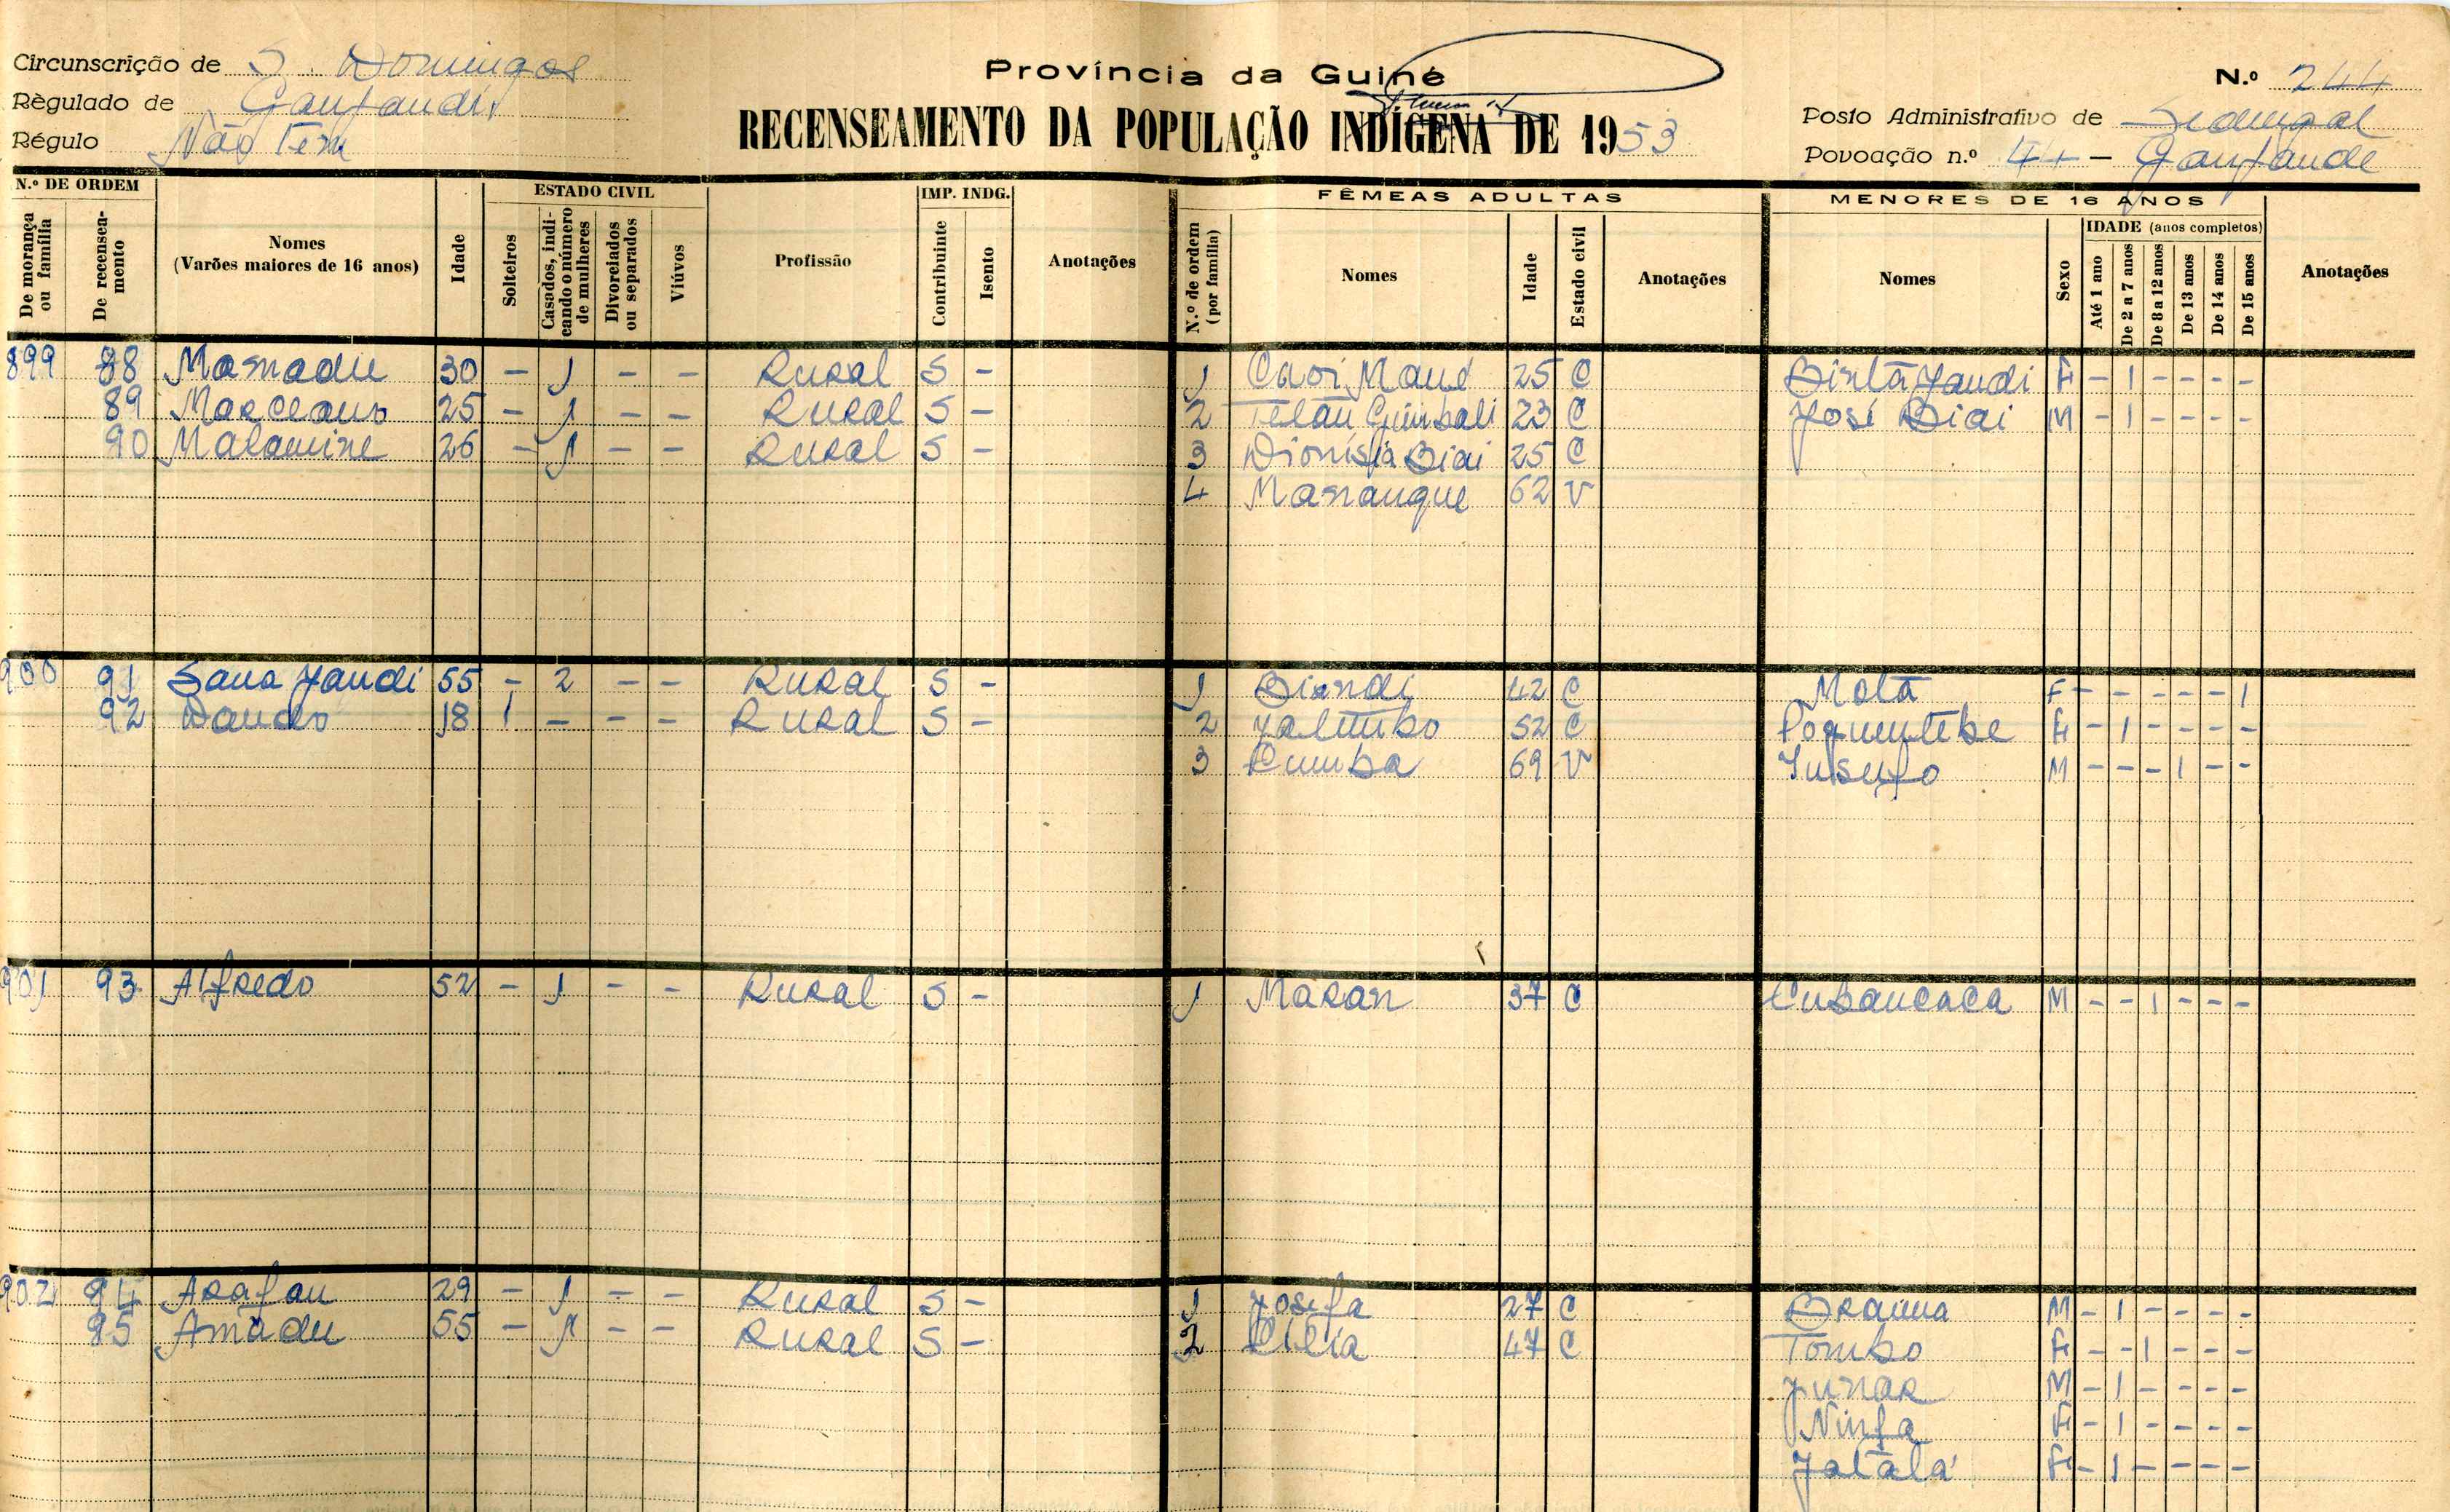 Circunscrição de S. Domingos
Règulado de
Régulo Não Tem
Província da Guiné
RECENSEAMENTO DA POPULAÇÃO INDÍGENA DE 1953
N.º 244
Posto Administrativo de
Povoação n.º 44 -
N.º DE ORDEM
De morança ou família
De recenseamento
Nomes
(Varões maiores de 16 anos)
Idade
ESTADO CIVIL
Solteiros
Casados, indicando o número de mulheres
Divorciados ou separados
Viúvos
Profissão
IMP. INDG.
Contribuinte
Isento
Anotações
FÊMEAS ADULTAS
N.º de ordem (por família)
Nomes
Idade
Estado civil
Anotações
MENORES DE 16 ANOS
Nomes
Sexo
IDADE (anos completos)
Até 1 ano
De 2 a 7 anos
De 8 a 12 anos
De 13 anos
De 14 anos
De 15 anos
Anotações
899 88 Mamadu 30 - 1 - - Rural S - 1 25 C F - 1 - - - -
89 25 - 1 - - Rural S - 2 23 C José Biai M - 1 - - - -
90 Malamine 26 - 1 - - Rural S - 3 Dionísia Biai 25 C
4 62 V
900 91 Sana Jandi 55 - 2 - - Rural S - 1 42 C F - - - - - 1
92 18 1 - - - Rural S - 2 52 C F - 1 - - - -
3 Cumba 69 V M - - - 1 - -
901 93 Alfredo 52 - 1 - - Rural S - 1 Maran 37 C M - - 1 - - -
902 94 Arafan 29 - 1 - - Rural S - 1 Josefa 27 C Braima M - 1 - - - -
95 Amadu 55 - 1 - - Rural S - 2 47 C Tombo F - - 1 - - -
M - 1 - - - -
F - 1 - - - -
F - 1 - - - -